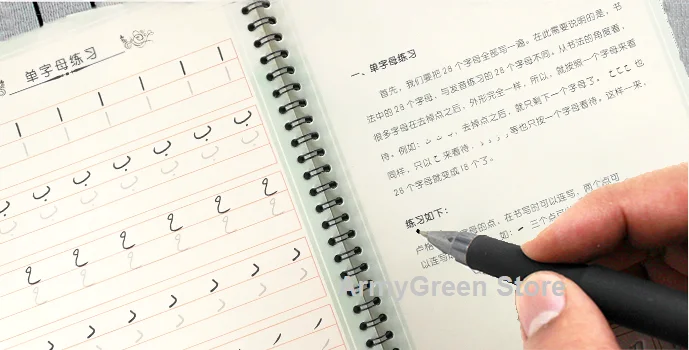 单字母练习
ا ا ا ا ا ا
ب ب ب ب ب ب
ح ح ح ح ح ح
د د د د د د
一、单字母练习
首先，我们要把28个字母全部写一遍。在此需要说明的是，书
法中的28个字母，与发音练习的28个字母不同。从书法的角度看，
很多字母在去掉点之后，外形完全一样，所以，就按照一个字母来看
待。例如：去掉点之后，就只剩下一个字母了。也
同样，只以 来看待，等也只按一个字母看待。这样一来，
28个字母就变成18个了。
练习如下：
ArmyGreen Store